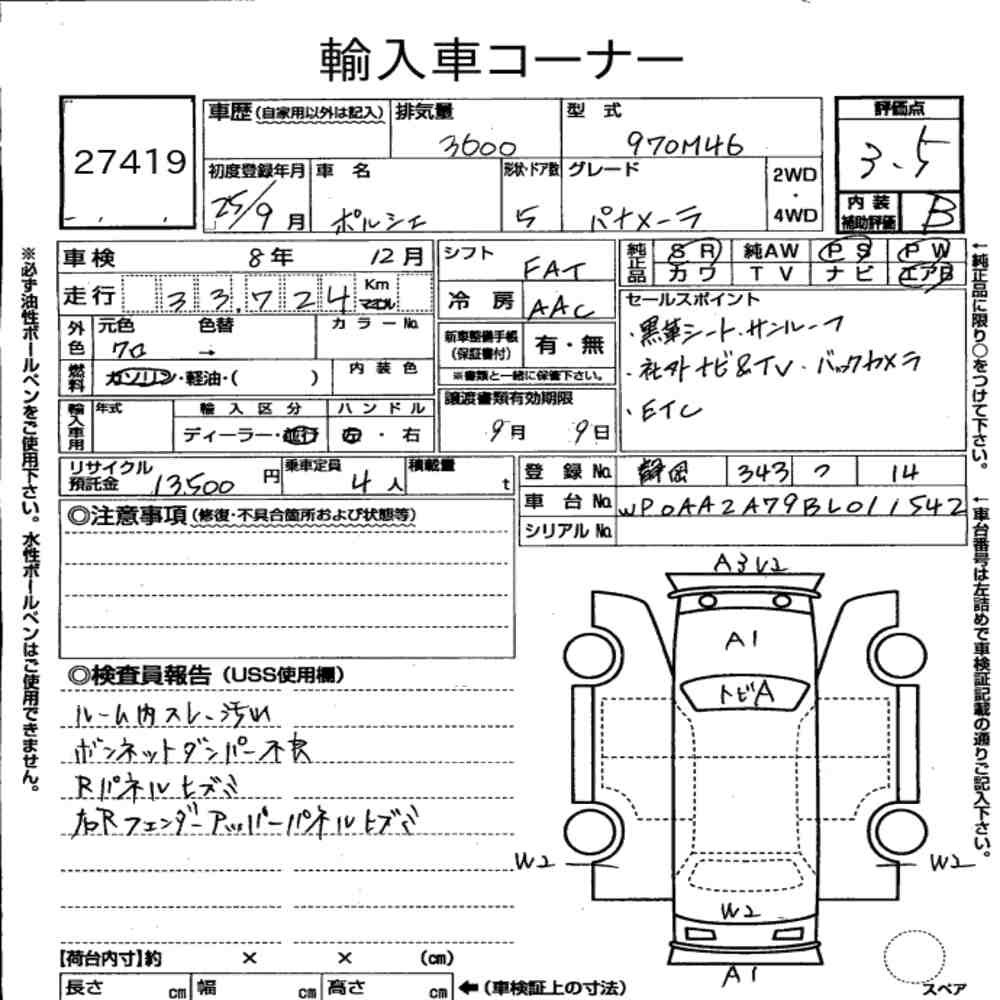 輸入車コーナー
27419
車歴(自家用以外は記入) 排気量 3600 型式 970M46
初度登録年月 25/9月 車名 ポルシェ 形状・ドア数 5 グレード パナメーラ 2WD・4WD
評価点 3.5
内装補助評価 B
車検 8年 12月
走行 33,724 Km マイル
外色 元色 クロ 色替 → カラーNo.
燃料 ガソリン・軽油・( ) 内装色
輸入車用 年式 輸入区分 ディーラー・並行 ハンドル 左・右
リサイクル預託金 13,500円 乗車定員 4人 積載量 t
シフト FAT
冷房 AAC
新車整備手帳(保証書付) 有・無
※書類と一緒に保管下さい。
譲渡書類有効期限
9月 9日
純正品 SR 純AW PS PW
カワ TV ナビ エアB
セールスポイント
・黒革シート・サンルーフ
・社外ナビ&TV・バックカメラ
・ETC
登録No. 静岡 343 フ 14
車台No. WP0AA2A79BL011542
シリアルNo.
◎注意事項(修復・不具合箇所および状態等)
◎検査員報告(USS使用欄)
ルーム内スレ・汚れ
ボンネットダンパー不良
Rパネルヒズミ
右Rフェンダーアッパーパネルヒズミ
A3U2
A1
トビA
W2
W2
W2
A1
スペア
【荷台内寸】約 × × (cm)
長さ cm 幅 cm 高さ cm ←(車検証上の寸法)
※必ず油性ボールペンをご使用下さい。水性ボールペンはご使用できません。
←純正品に限り○をつけて下さい。
←車台番号は左詰めで車検証記載の通りご記入下さい。